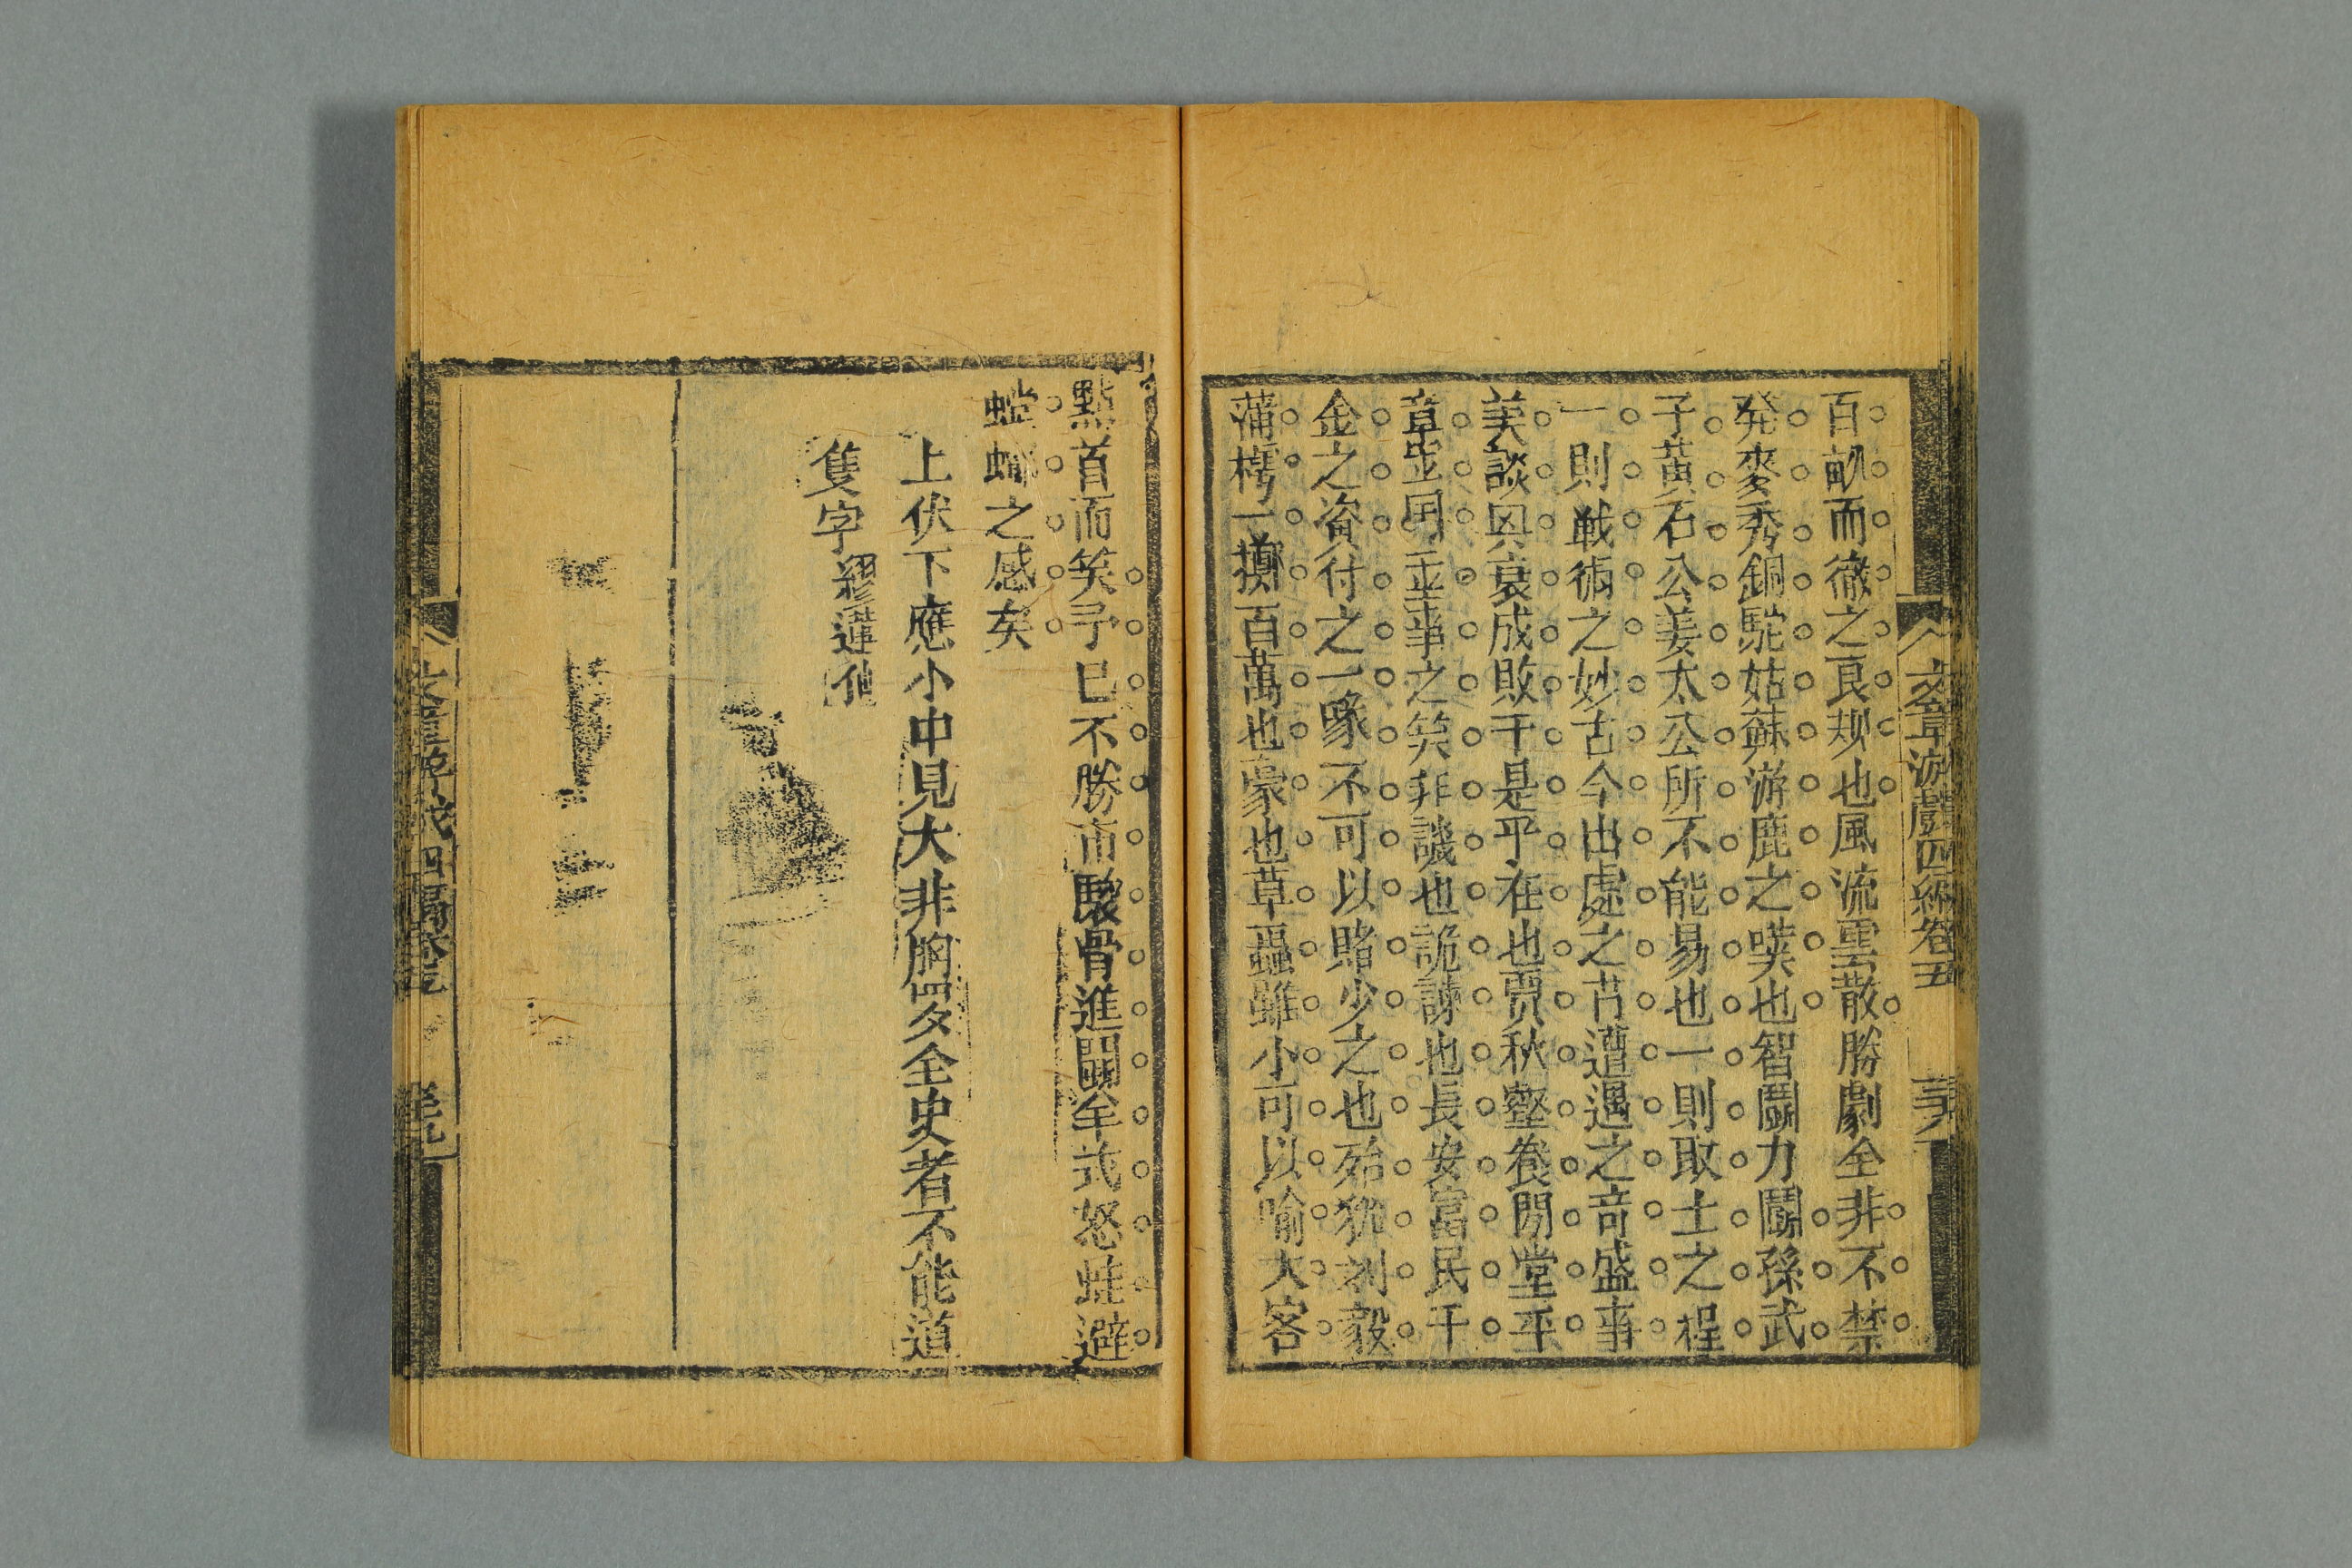 文章游戲四編卷五
百畝而徹之良規也風流雲散勝劇全非不禁
発麥秀銅駝姑蘇游鹿之嘆也智鬪力鬪孫武
子黃石公姜太公所不能易也一則取士之程
一則戰術之妙古今出處之苦遭遇之竒盛事
美談與衰成敗于是乎在也賈秋壑養閒堂平
章豈因並事之笑非譏也詭諫也長安富民千
金之資付之一喙不可以賭少之也殆猶刘毅
蒲樗一擲百萬也蒙也草蟲雖小可以喻大客
點首而笑予已不勝市駿骨進鬪牟式怒蛙避
螳螂之感矣
上伏下應小中見大非胸罗全史者不能道
隻字繆蓮仙